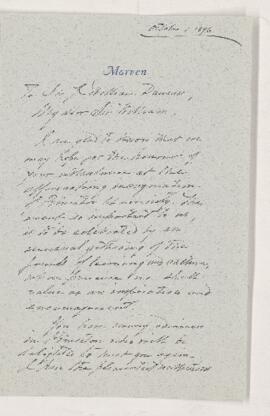 October 1 1896
Marven
To Sir J. William Dawson,
My dear Sir William,
I am glad to know that we
may hope for the honour of
your attendance at the
approaching inauguration
of Princeton University. The
event so important to us,
is to be celebrated by an
unusual gathering of the
friends of learning
value as an inspiration and
encouragement.
You have many admirers
in Princeton who will be
delighted to meet you again.
I have the pleasantest